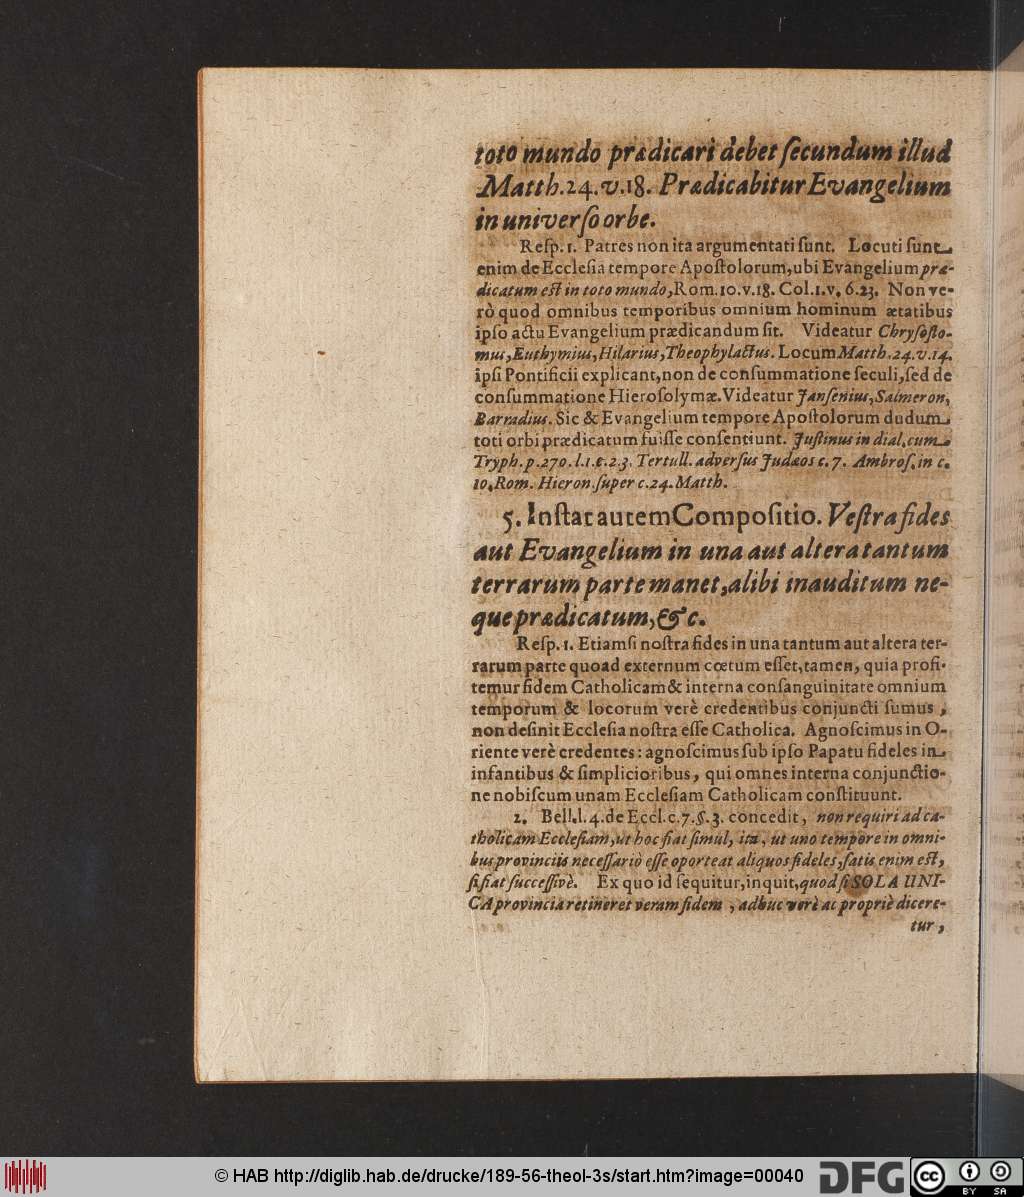 toto mundo prædicari debet ſecundum illud
Matth. 24. v. 18. Prædicabitur Evangelium
in univerſo orbe.
Reſp. 1. Patres non ita argumentati ſunt. Locuti ſunt
enim de Eccleſia tempore Apoſtolorum, ubi Evangelium præ-
dicatum eſt in toto mundo, Rom. 10. v. 18. Col. 1. v. 6. 23. Non ve-
rò quod omnibus temporibus omnium hominum ætatibus
ipſo actu Evangelium prædicandum ſit. Videatur Chryſoſto-
mus, Euthymius, Hilarius, Theophylactus. Locum Matth. 24. v. 14.
ipſi Pontificii explicant, non de conſummatione ſeculi, ſed de
conſummatione Hieroſolymæ. Videatur Janſenius, Salmeron,
Barradius. Sic & Evangelium tempore Apoſtolorum dudum
toti orbi prædicatum fuiſſe conſentiunt. Juſtinus in dial. cum
Tryph. p. 270. l. 1. c. 2. 3. Tertull. adverſus Judæos c. 7. Ambroſ. in c.
10. Rom. Hieron. ſuper c. 24. Matth.
5. Inſtat autem Compoſitio. Veſtra fides
aut Evangelium in una aut altera tantum
terrarum parte manet, alibi inauditum ne-
que prædicatum, &c.
Reſp. 1. Etiamſi noſtra fides in una tantum aut altera ter-
rarum parte quoad externum cœtum eſſet, tamen, quia profi-
temur fidem Catholicam & interna conſanguinitate omnium
temporum & locorum verè credentibus conjuncti ſumus,
non deſinit Eccleſia noſtra eſſe Catholica. Agnoſcimus in O-
riente verè credentes: agnoſcimus ſub ipſo Papatu fideles in
infantibus & ſimplicioribus, qui omnes interna conjunctio-
ne nobiſcum unam Eccleſiam Catholicam conſtituunt.
2. Bell. l. 4. de Eccl. c. 7. §. 3. concedit, non requiri ad ca-
tholicam Eccleſiam, ut hoc fiat ſimul, ita, ut uno tempore in omni-
bus provinciis neceſſariò eſſe oporteat aliquos fideles, ſatis enim eſt,
ſi fiat ſucceſſivè. Ex quo id ſequitur, inquit, quod ſi SOLA UNI-
CA provincia retineret veram fidem, adhuc verè ac propriè dicere-
tur,
© HAB http://diglib.hab.de/drucke/189-56-theol-3s/start.htm?image=00040
DFG
cc BY SA